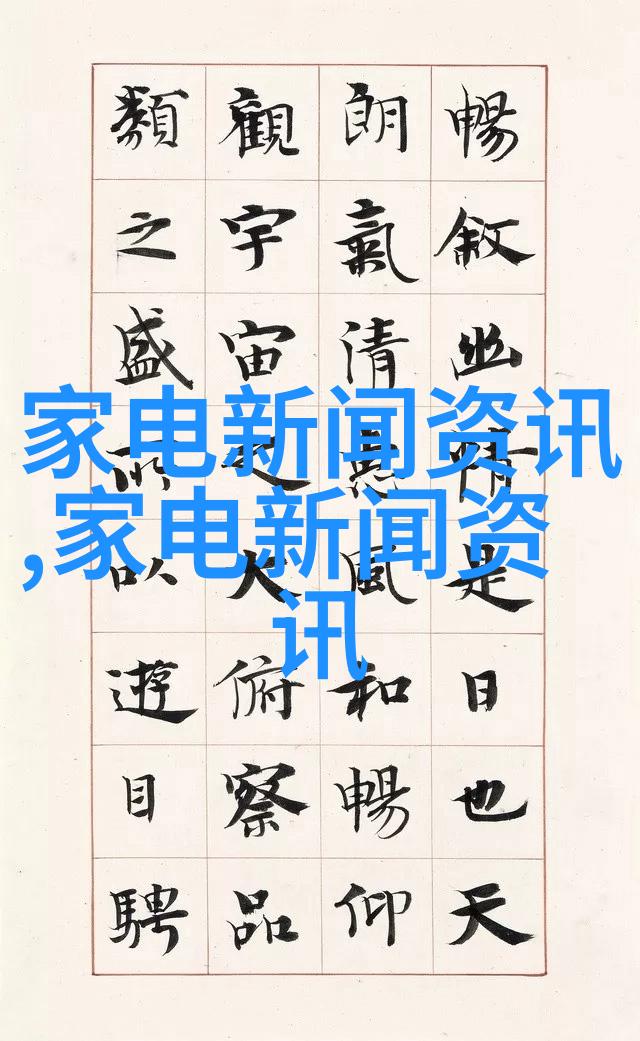 暢敘幽情是日也天
朗氣清惠風和暢仰
觀宇宙之大俯察品
類之盛所以遊目騁
家电新闻资讯
,家电新闻资
讯